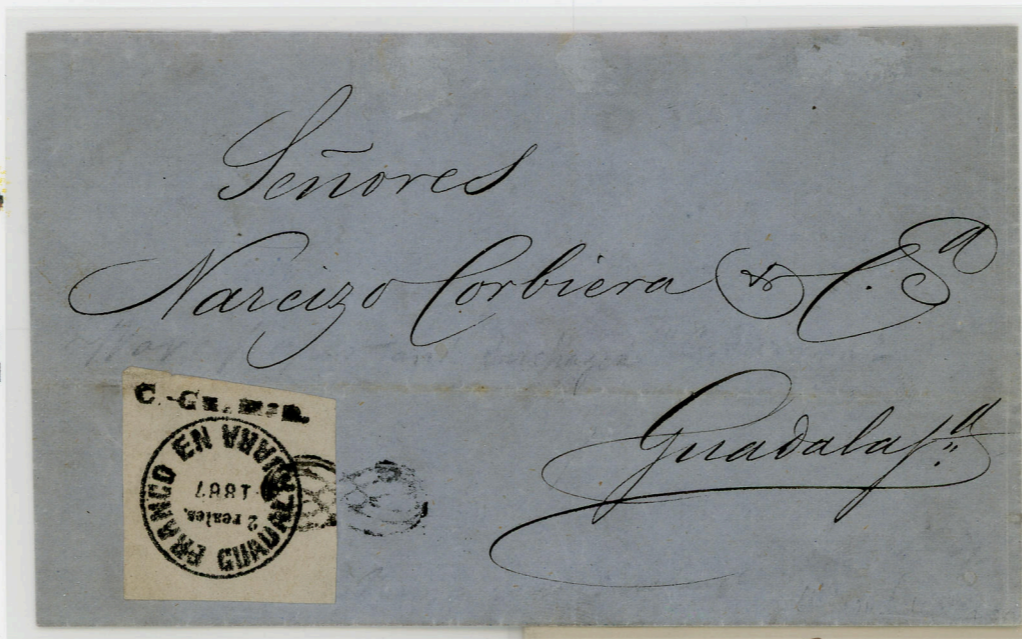 Señores
Narcizo Corbiera & C.ª
Guadalaj.ª
FRANCO EN GUADALAJARA
2 reales.
1867